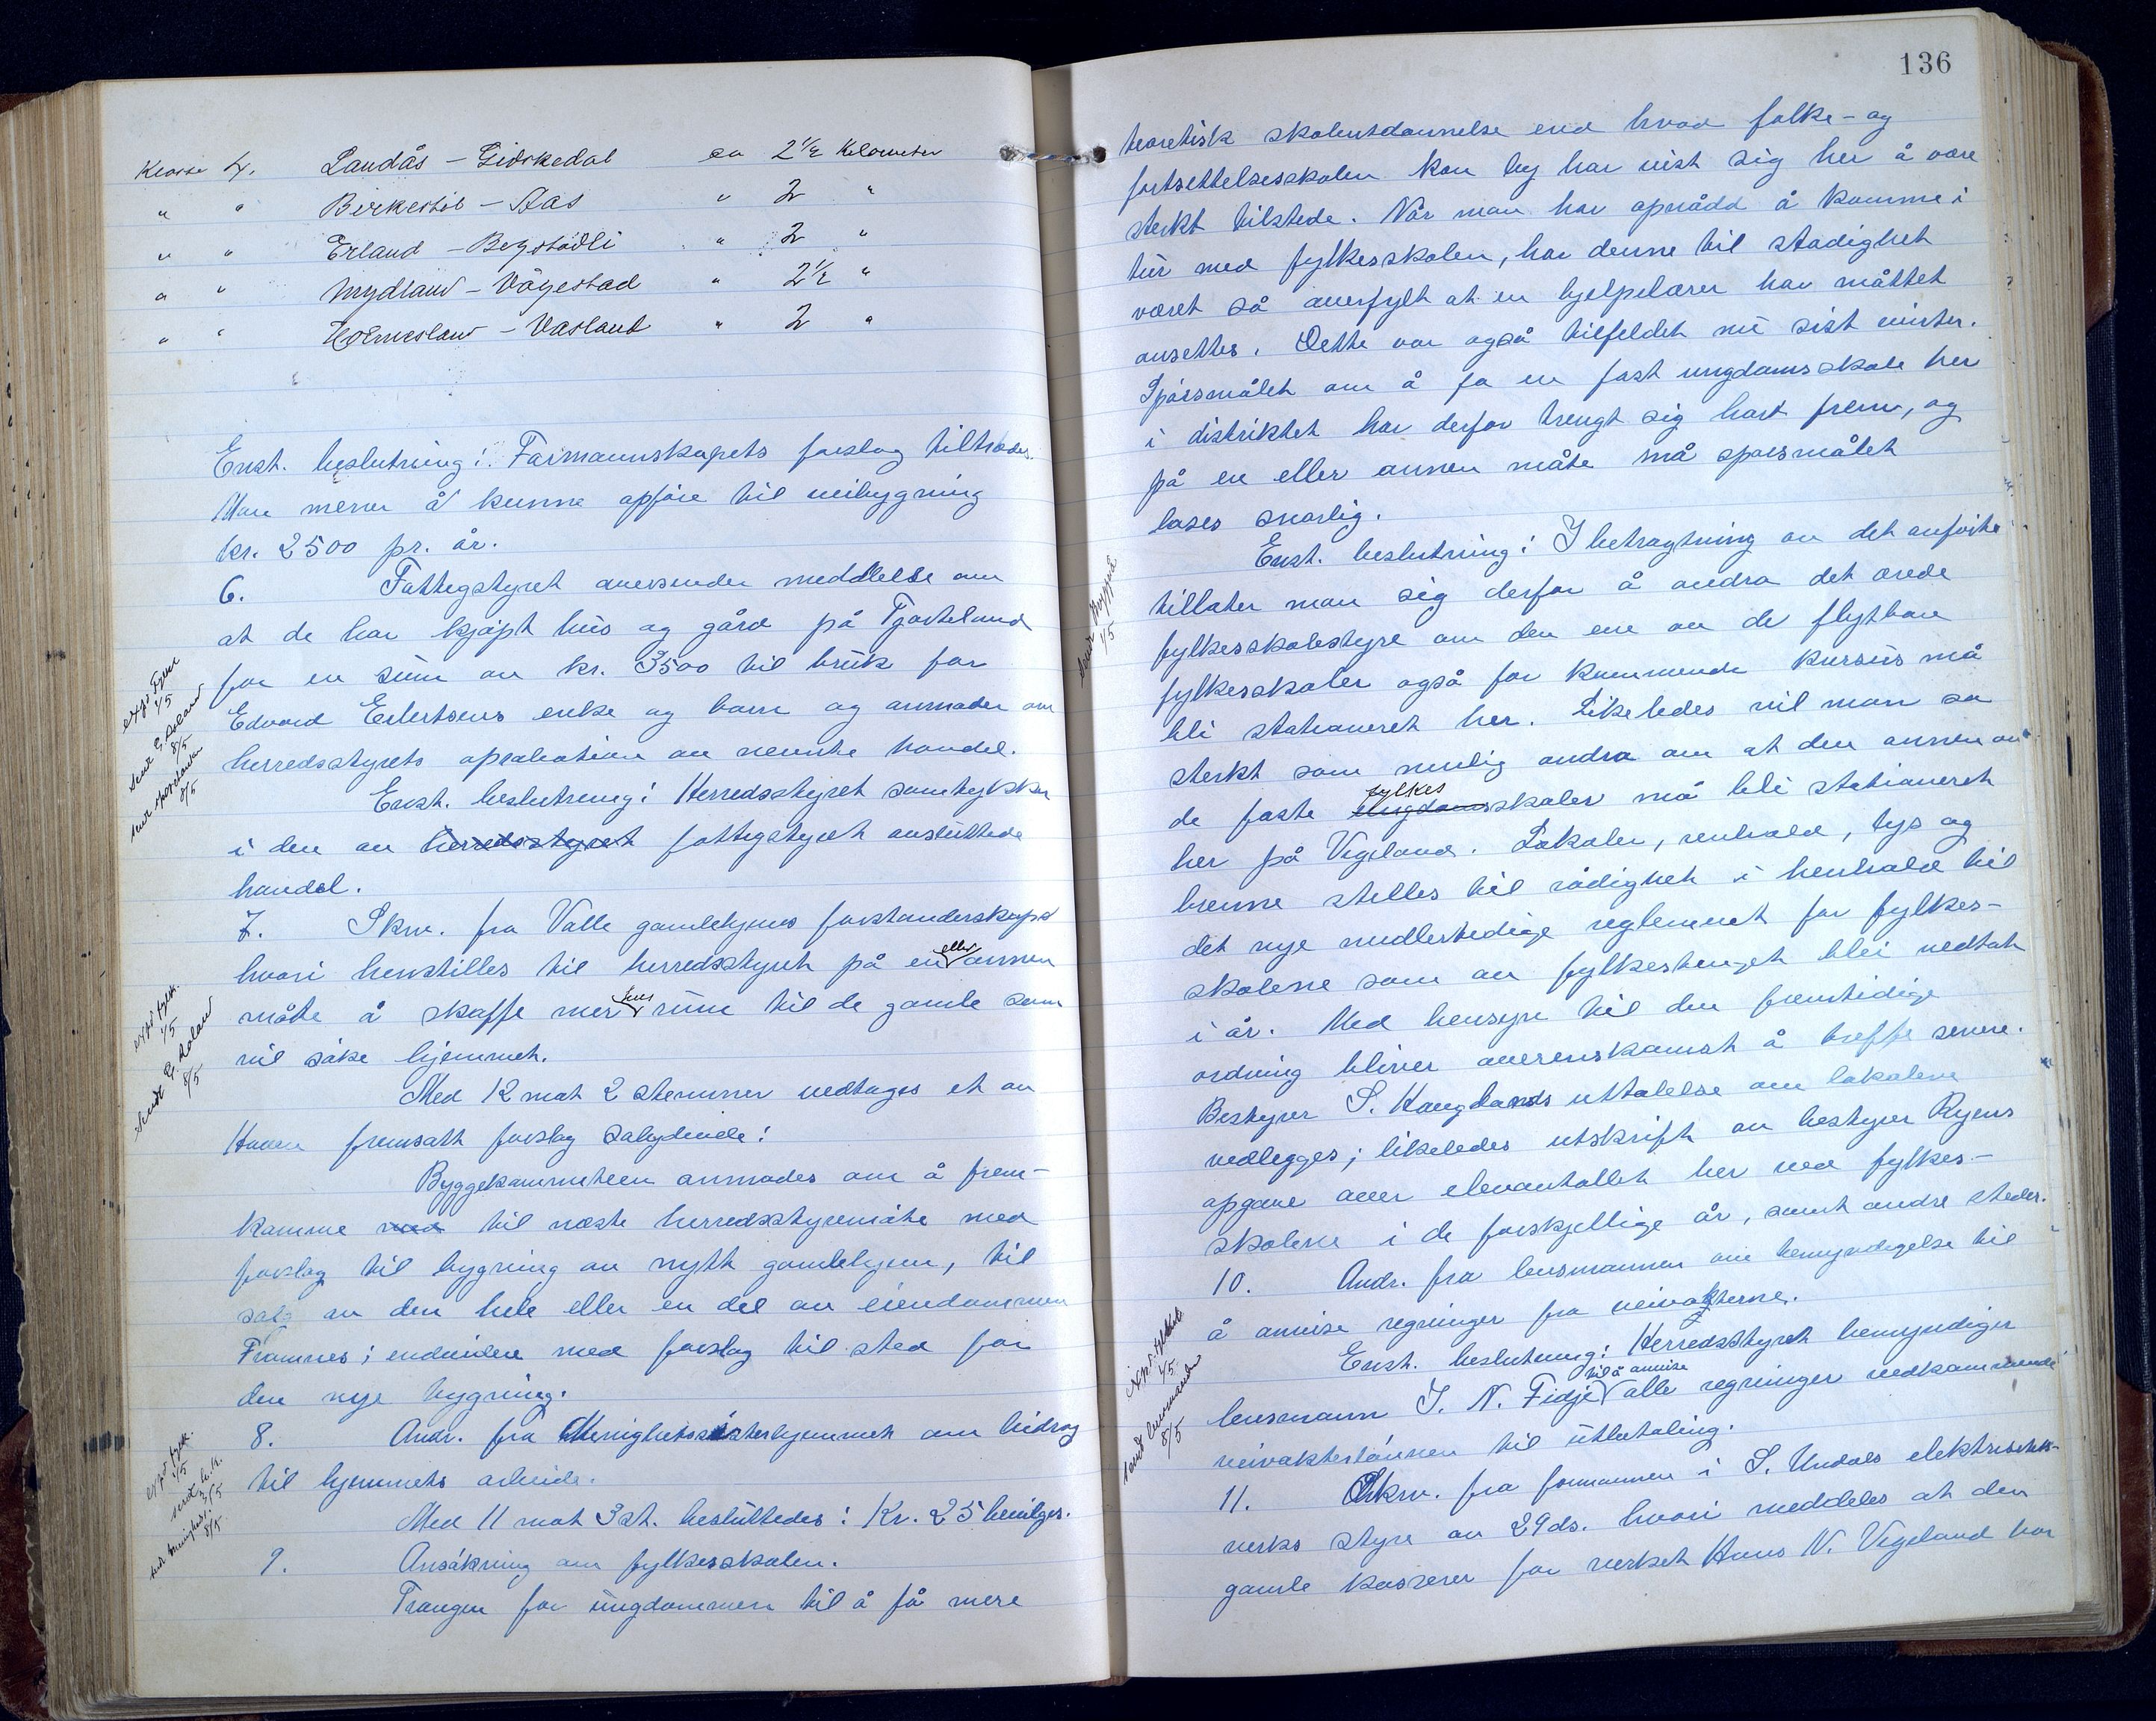 Klasse 4. Landås - Gidskedal ca 2½ Kilometer
" " Birkestöl - Aas " 2 "
" " Erland - Begstadli " 2 "
" " Mydland - Vågestad " 2½ "
" " Holmesland - Vasland " 2 "
Enst. beslutning: Formannskapets forslag tiltrædes.
Man mener å kunne opføre til veibygning
kr. 2500 pr. år.
6. Fattigstyret oversender meddelelse om
at de har kjøpt hus og gård på Tjorteland
for en sum av kr. 3500 til bruk for
Edvard Eilertsens enke og barn og anmoder om
herredsstyrets aprobation av nevnte handel.
Enst. beslutning: Herredsstyret samtykker
i den av herredsstyret fattigstyret avsluttede
handel.
7. Skriv. fra Valle gamlehjems forstanderskap
hvori henstilles til herredsstyret på en eller annen
måte å skaffe mer hus rum til de gamle som
vil søke hjemmet.
Med 12 mot 2 stemmer vedtages et av
Haaen fremsatt forslag sålydende:
Byggekommiteen anmodes om å frem-
komme med til næste herredsstyremøte med
forslag til bygning av nytt gamlehjem, til
salg av den hele eller en del av eiendommen
Framnes; endvidere med forslag til sted for
den nye bygning.
8. Andr. fra Menighetssøsterhjemmet om bidrag
til hjemmets arbeide.
Med 11 mot 3 st. besluttedes: Kr. 25 bevilges.
9. Ansøkning om fylkesskolen.
Trangen for ungdommen til å få mere
expd fylk.
1/5
Sendt G. Aoland
8/5
expd fylk.
1/5
Sendt G. Aoland
8/5
expd fylk.
1/5
8/5
136
teoretisk skoleutdannelse end hvad folke- og
fortsettelsesskolen kan by har vist sig her å være
sterkt tilstede. Når man har opnådd å komme i
tur med fylkesskolen, har denne til stadighet
været så overfylt at en hjelpelærer har måttet
ansettes. Dette var også tilfeldet nu sist vinter.
Spørsmålet om å få en fast ungdomsskole her
i distriktet har derfor trengt sig hart frem, og
på en eller annen måte må spørsmålet
løses snarlig.
Enst. beslutning: I betragtning av det anførte
tillater man sig derfor å andra det ærede
fylkesskolestyre om den ene av de flytbare
fylkesskoler også for kommende kursus må
bli stationeret her. Likeledes vil man så
sterkt som mulig andra om at den annen av
de faste ungdoms fylkes skoler må bli stationeret
her på Vigeland. Lokaler, renhold, lys og
brenne stilles til rådighet i henhold til
det nye midlertidige reglement for fylkes-
skolene som av fylkestinget blei vedtatt
i år. Med hensyn til den fremtidige
ordning bliver overenskomst å treffe senere.
Bestyrer S. Hauglands uttalelse om lokalene
vedlegges; likeledes utskrift av bestyrer Ryens
opgave over elevantallet her ved fylkes-
skolene i de forskjellige år, samt andre steder.
10. Andr. fra lensmannen om bemyndigelse til
å anvise regninger fra veivokterne.
Enst. beslutning: Herredsstyret bemyndiger
lensmann J. N. Fidje til å anvise alle regninger vedkommende
veivokterlønnen til utbetaling.
11. Skriv. fra formannen i S. Undals elektrisitets-
verks styre av 29 ds. hvori meddeles at den
gamle kasserer for verket Hans N. Vigeland har
1/5
1/5
Sendt lensmannen
8/5